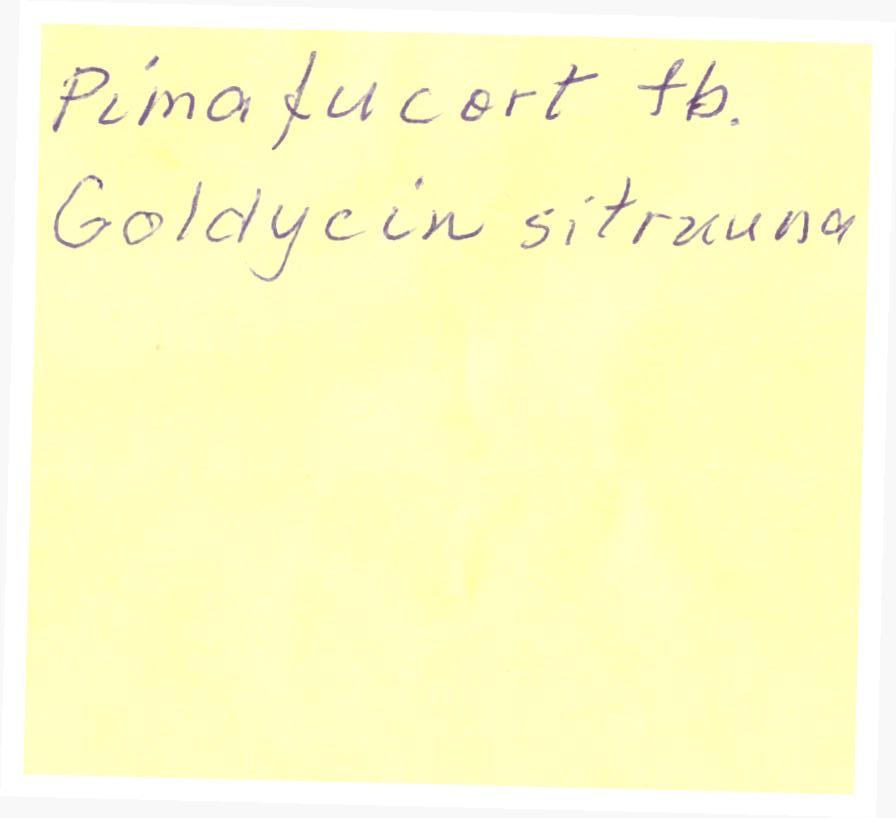 Pimafucort tb.
Goldycin sitruuna